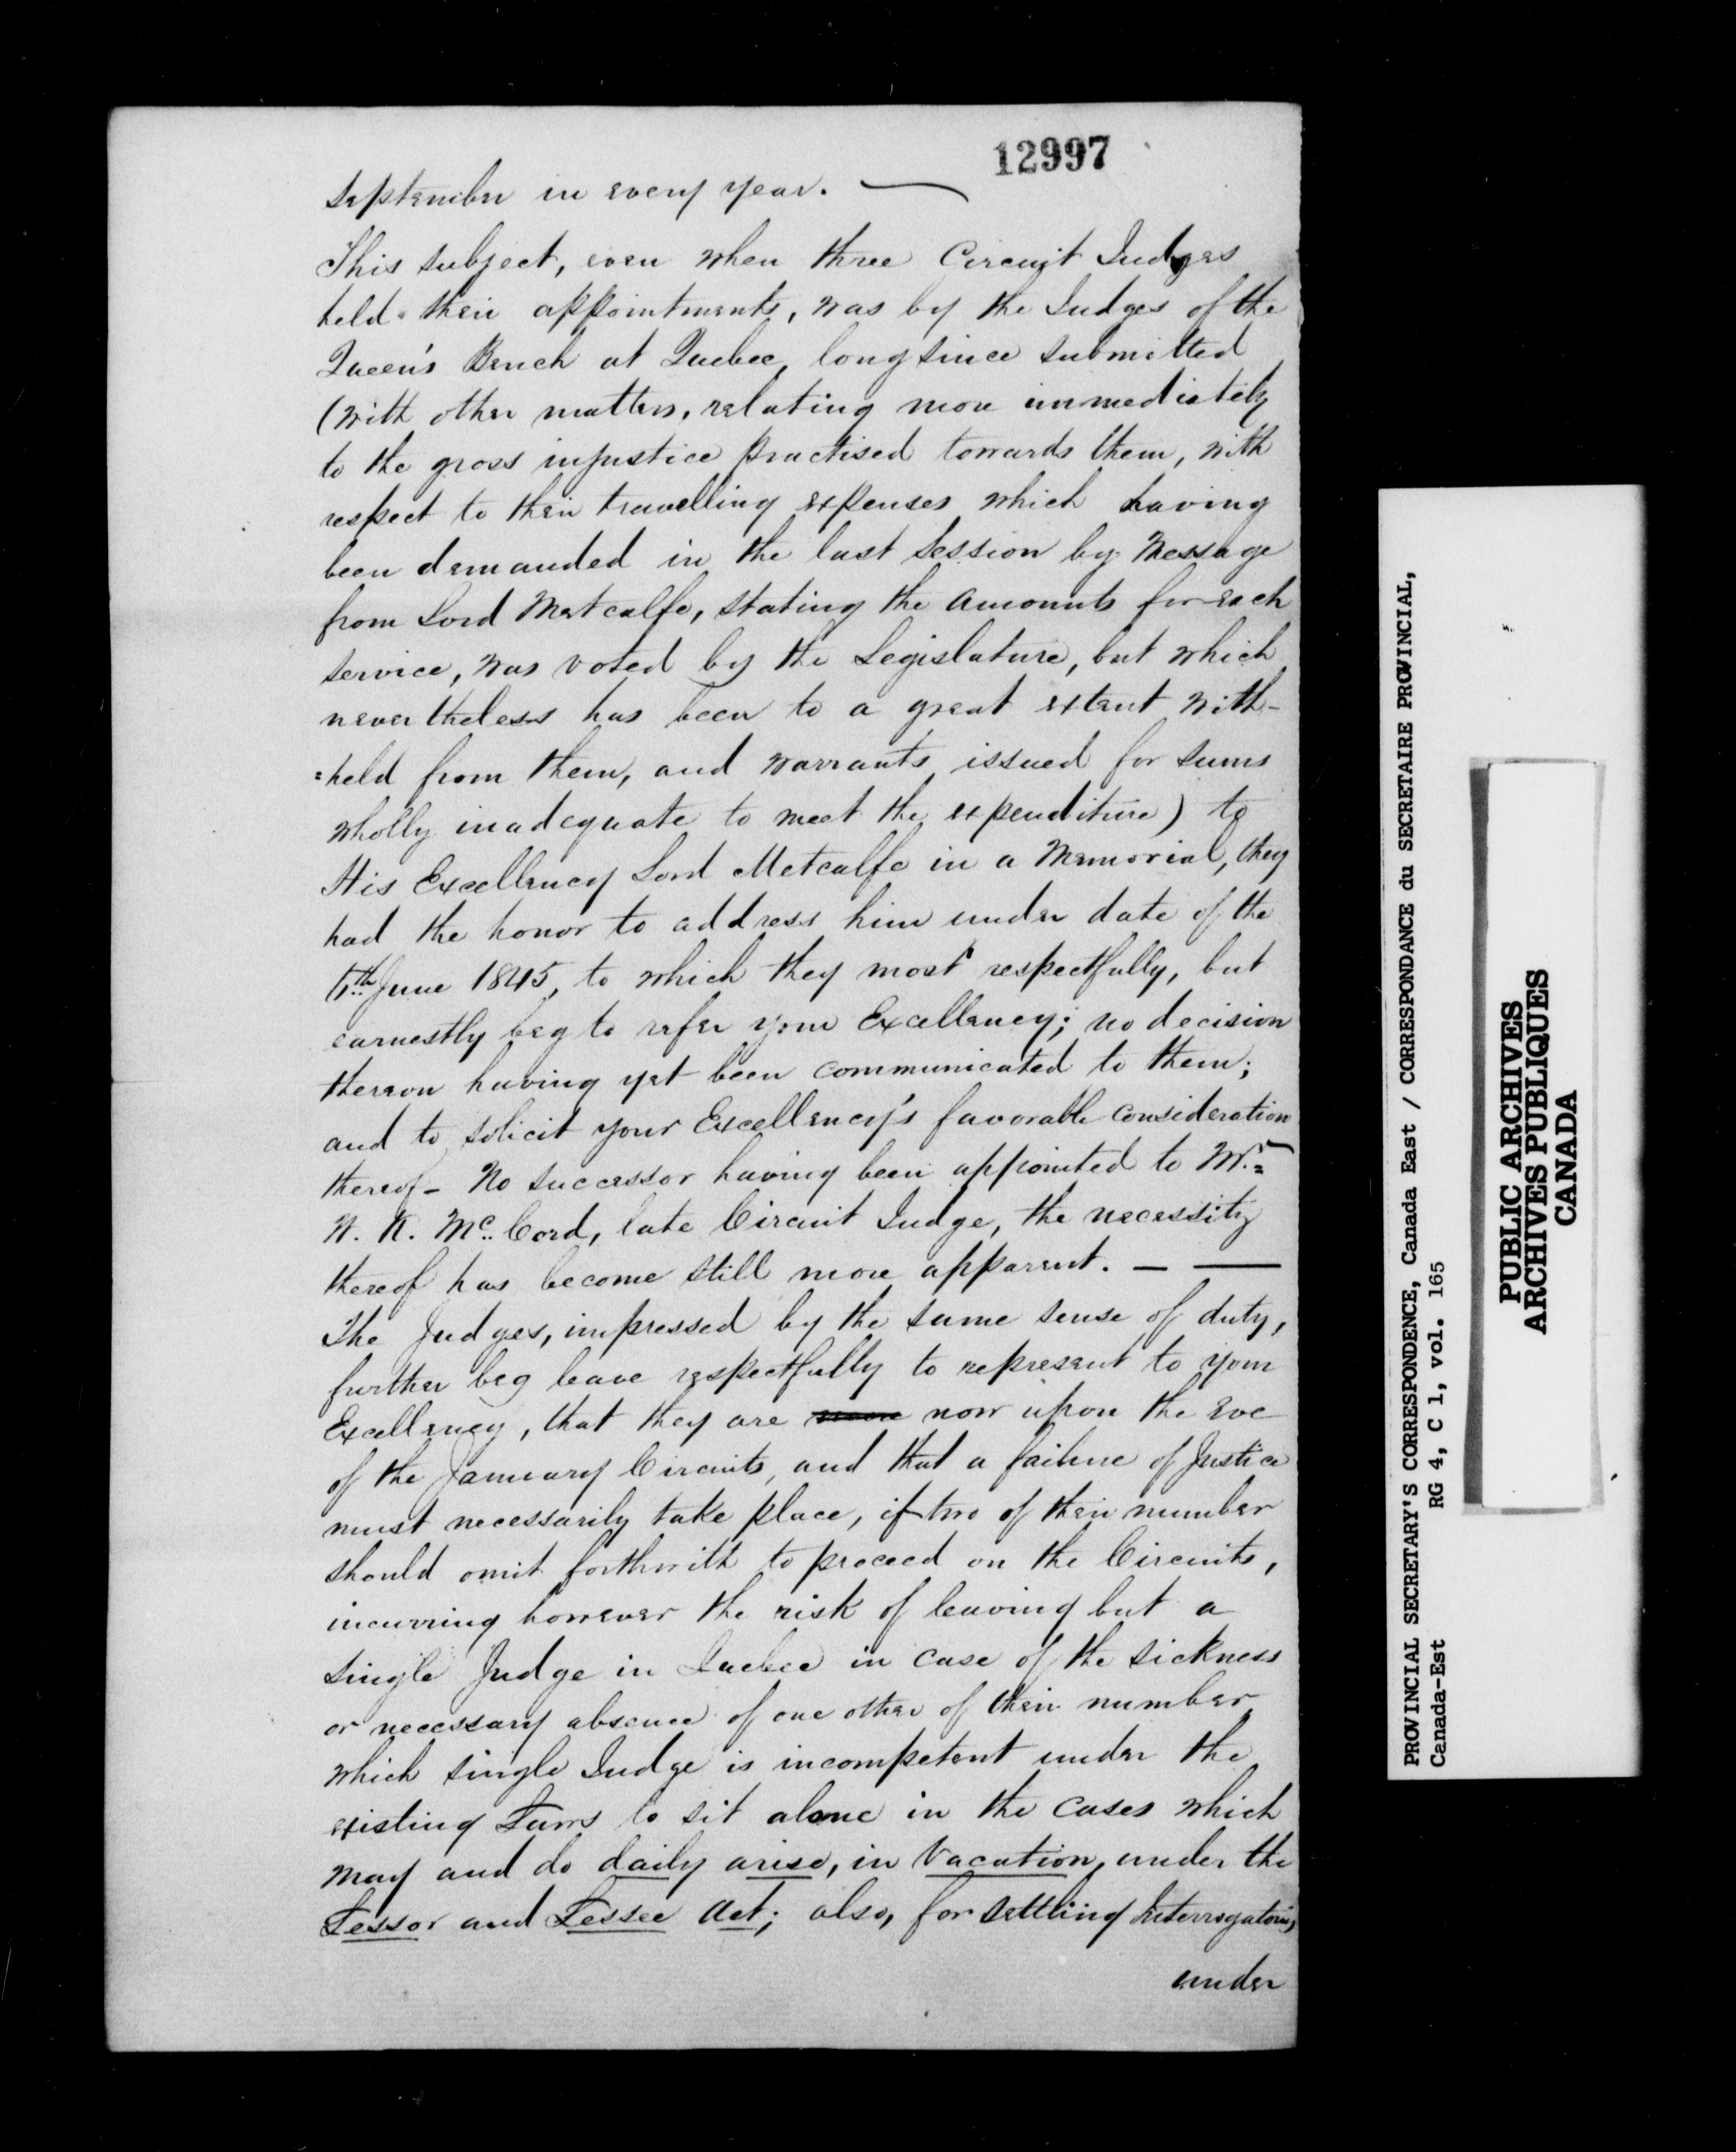 12997
September in every year. —
This subject, even when three Circuit Judges
held their appointments, was by the Judges of the
Queen's Bench at Quebec, long since submitted
(with other matters, relating more immediately
to the gross injustice practised towards them, with
respect to their travelling expenses which having
been demanded in the last Session by Message
from Lord Metcalfe, stating the amounts for each
service, was voted by the Legislature, but which
nevertheless has been to a great extent with-
=held from them, and warrants issued for sums
wholly inadequate to meet the expenditure) to
His Excellency Lord Metcalfe in a Memorial, they
had the honor to address him under date of the
June 1845, to which they most respectfully, but
earnestly beg to refer your Excellency; no decision
thereon having yet been communicated to them;
and to solicit your Excellency's favorable consideration
thereof - No successor having been appointed to Mr.
W. K. Mc.Cord, late Circuit Judge, the necessity
thereof has become still more apparent. — —
The Judges, impressed by the same sense of duty,
further beg leave respectfully to represent to your
Excellency, that they are now upon the eve
of the January Circuits, and that a failure of Justice
must necessarily take place, if two of their number
should omit forthwith to proceed on the Circuits,
incurring however the risk of leaving but a
single Judge in Quebec in case of the sickness
or necessary absence of one other of their number
which single Judge is incompetent under the
existing Laws to sit alone in the cases which
may and do daily arise, in Vacation, under the
Lessor and Lessee Act; also, for settling Interrogatories
under
PROVINCIAL SECRETARY'S CORRESPONDENCE, Canada East / CORRESPONDANCE du SECRETAIRE PROVINCIAL,
Canada-Est RG 4, C 1, vol. 165
PUBLIC ARCHIVES
ARCHIVES PUBLIQUES
CANADA